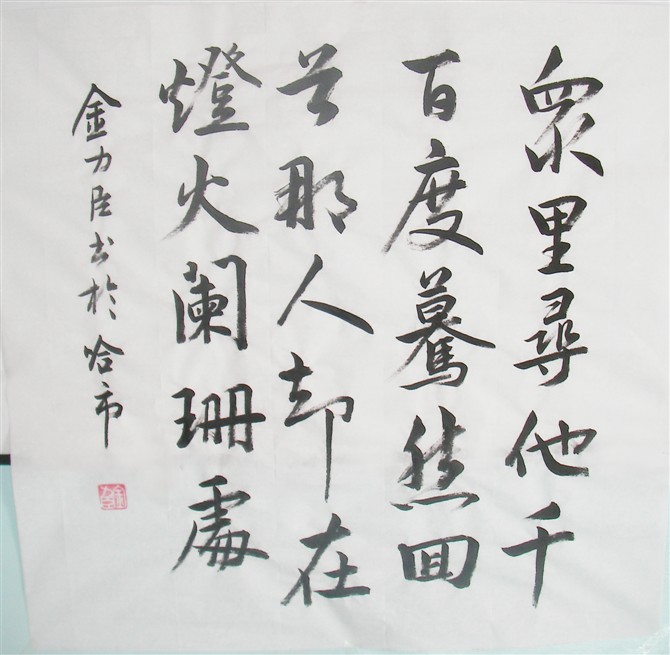 衆里尋他千
百度驀然回
首那人却在
燈火闌珊處
金力臣书於哈市